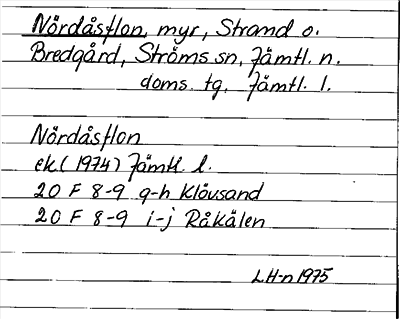 Nördåsflon, myr, Strand o.
Bredgård, Ströms sn, Jämtl. n.
doms. tg, Jämtl. l.
Nördåsflon
ek (1974) Jämtl l.
20 F 8-9 g-h Klövsand
20 F 8-9 i-j Råkälen
LH-n 1975